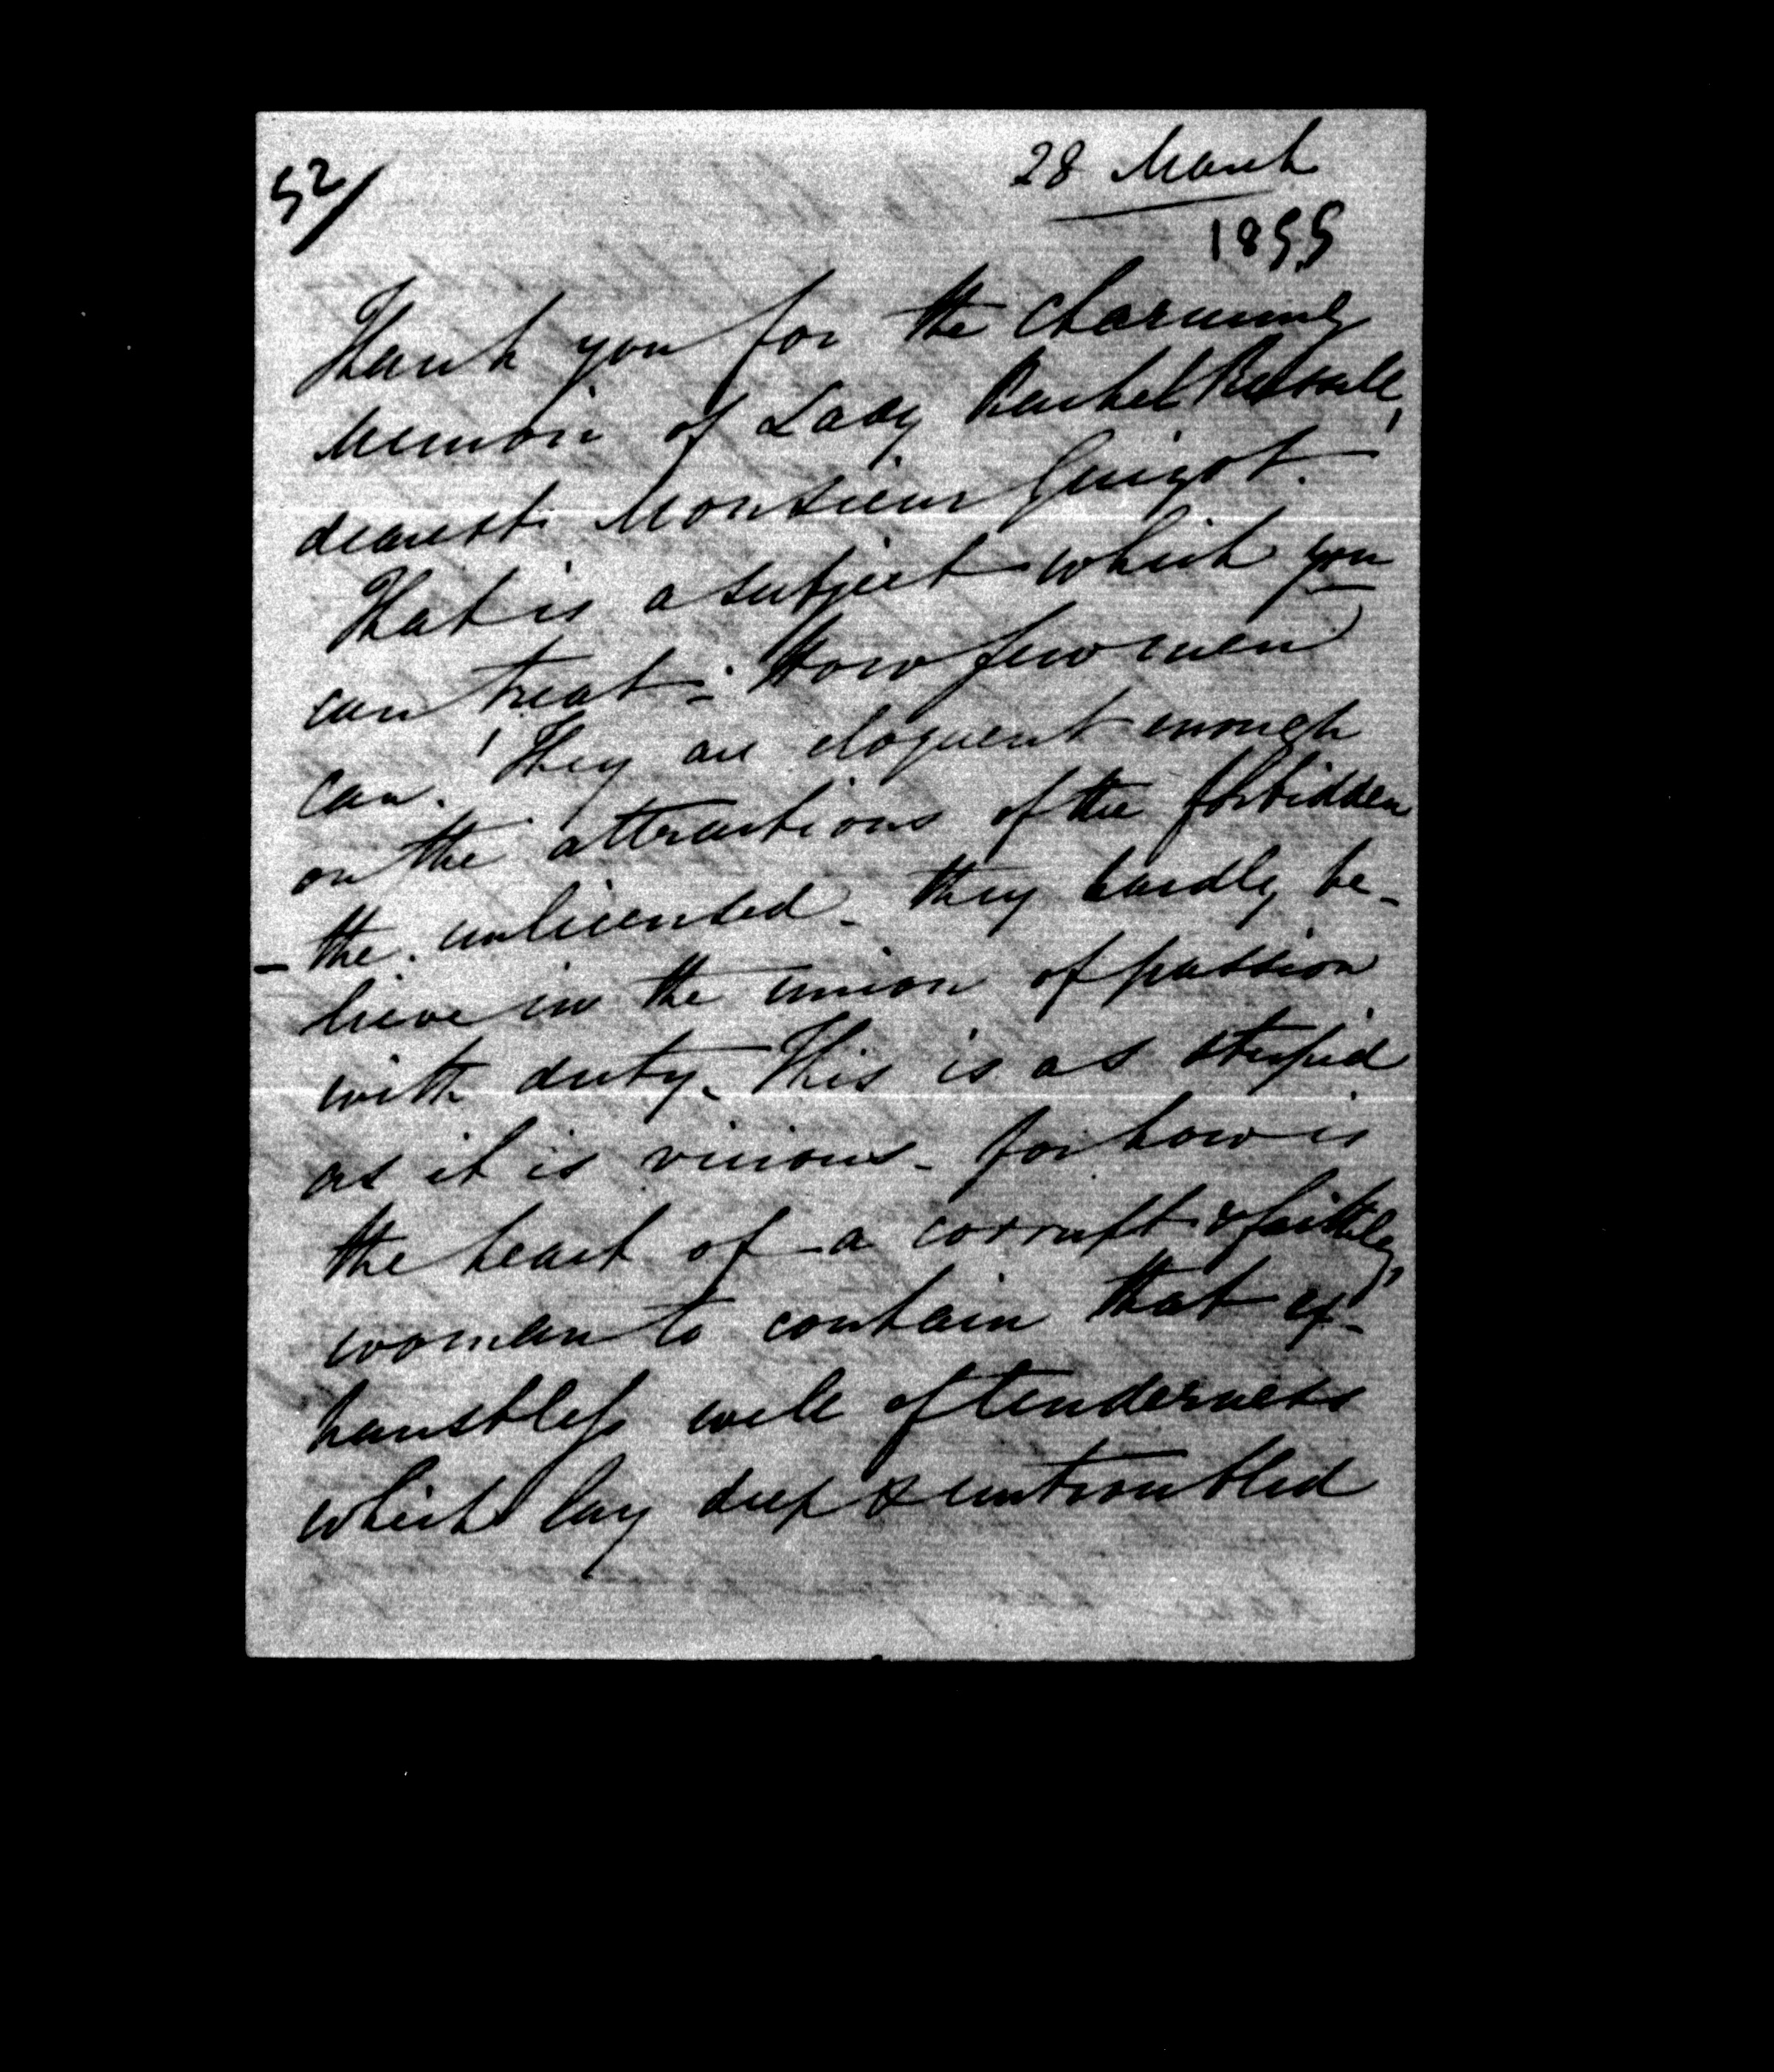 52/
28 March
1855
Thank you for the charming
memoir of Lady Rachel Russell,
dearest Monsieur Guizot.
That is a subject which you
can treat. How few men
can! They are eloquent enough
on the attractions of the forbidden
- the unlicensed - they hardly be-
lieve in the union of passion
with duty. This is as stupid
as it is vicious - for how is
the heart of a corrupt & faithless
woman to contain that ex-
haustless well of tenderness
which lay deep & untroubled